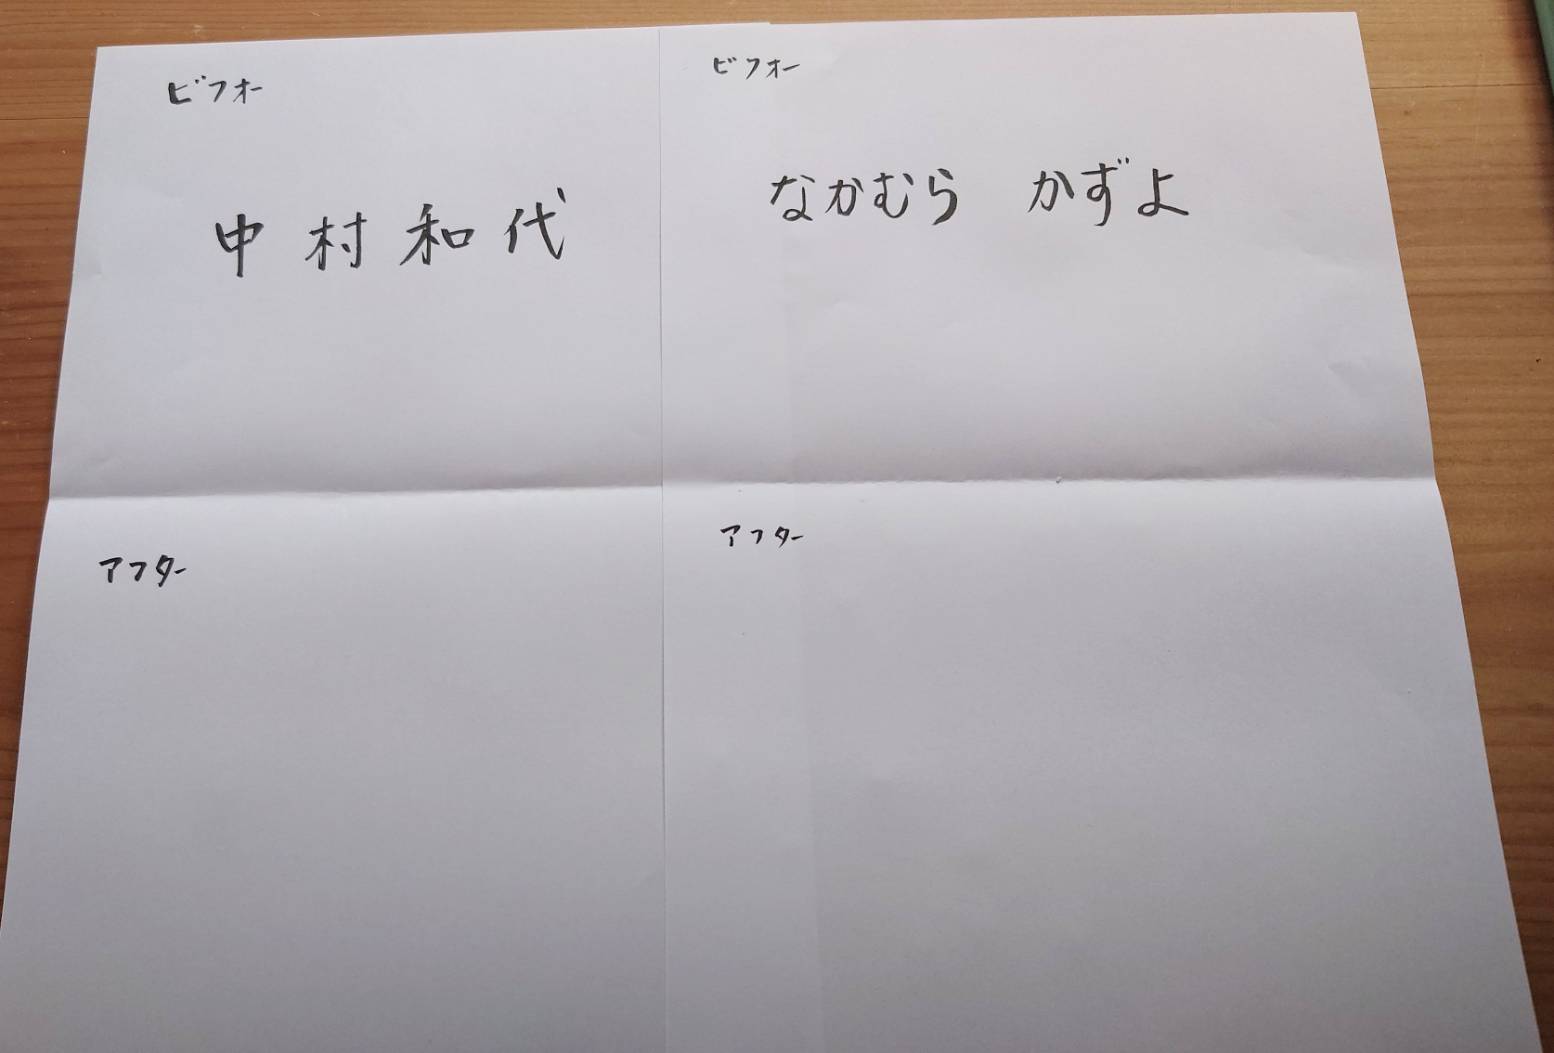 ビフォー
中村和代
ビフォー
なかむら かずよ
アフター
アフター